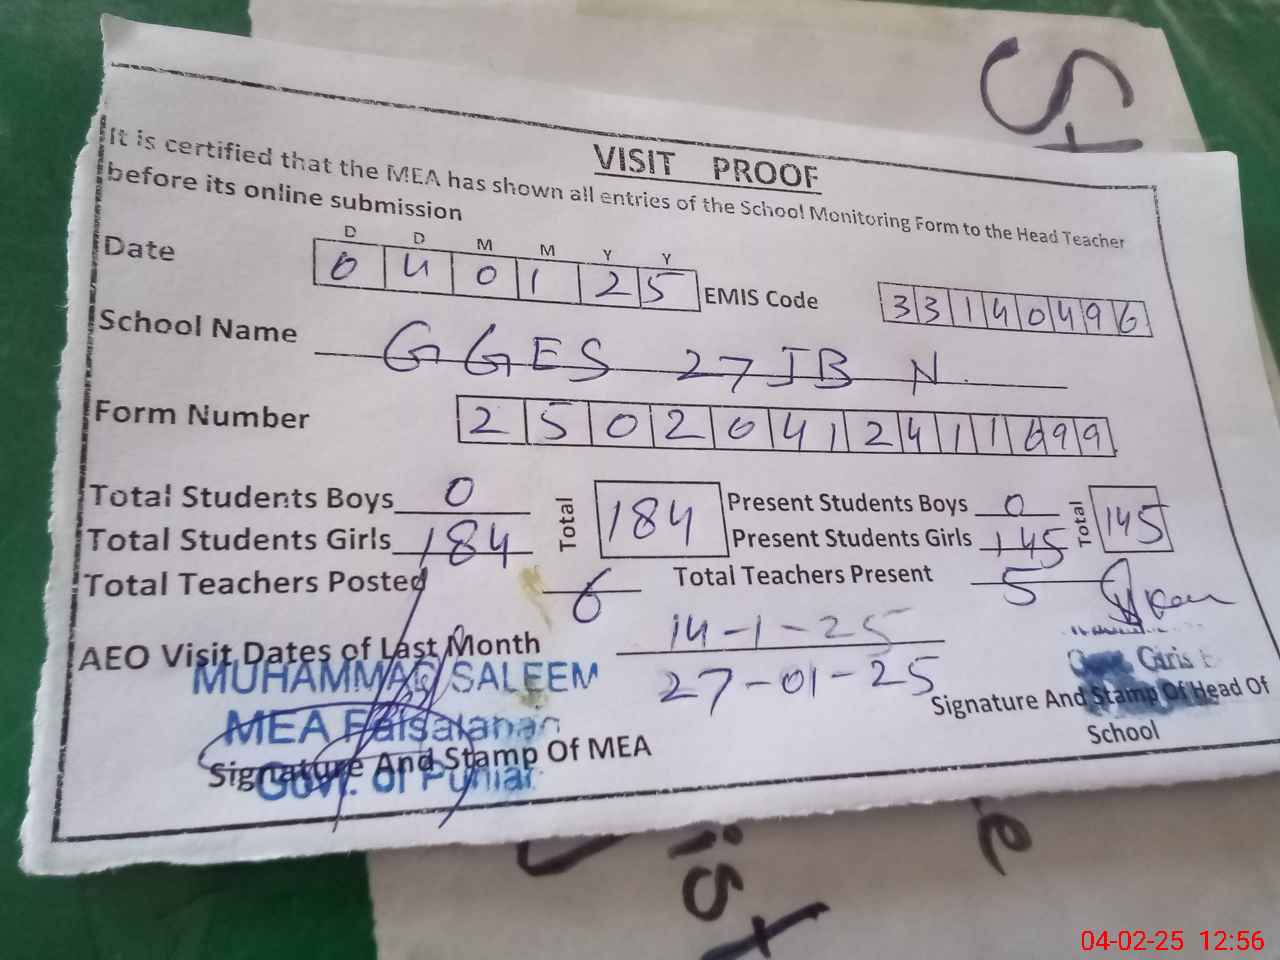 St
VISIT PROOF
It is certified that the MEA has shown all entries of the School Monitoring Form to the Head Teacher
before its online submission
D D M M Y Y
Date 0 4 0 1 2 5 EMIS Code 3 3 1 4 0 4 9 6
School Name GGES 27 JB N.
Form Number 2 5 0 2 0 4 1 2 4 1 1 6 9 9
Total Students Boys 0 Total 184 Present Students Boys 0 Total 145
Total Students Girls 184 Present Students Girls 145
Total Teachers Posted 6 Total Teachers Present 5
AEO Visit Dates of Last Month 14-1-25
27-01-25
MUHAMMAD SALEEM
MEA Faisalabad
Govt. of Punjab
Signature And Stamp Of MEA
Girls
Signature And Stamp Of Head Of
School
e
ist
04-02-25 12:56